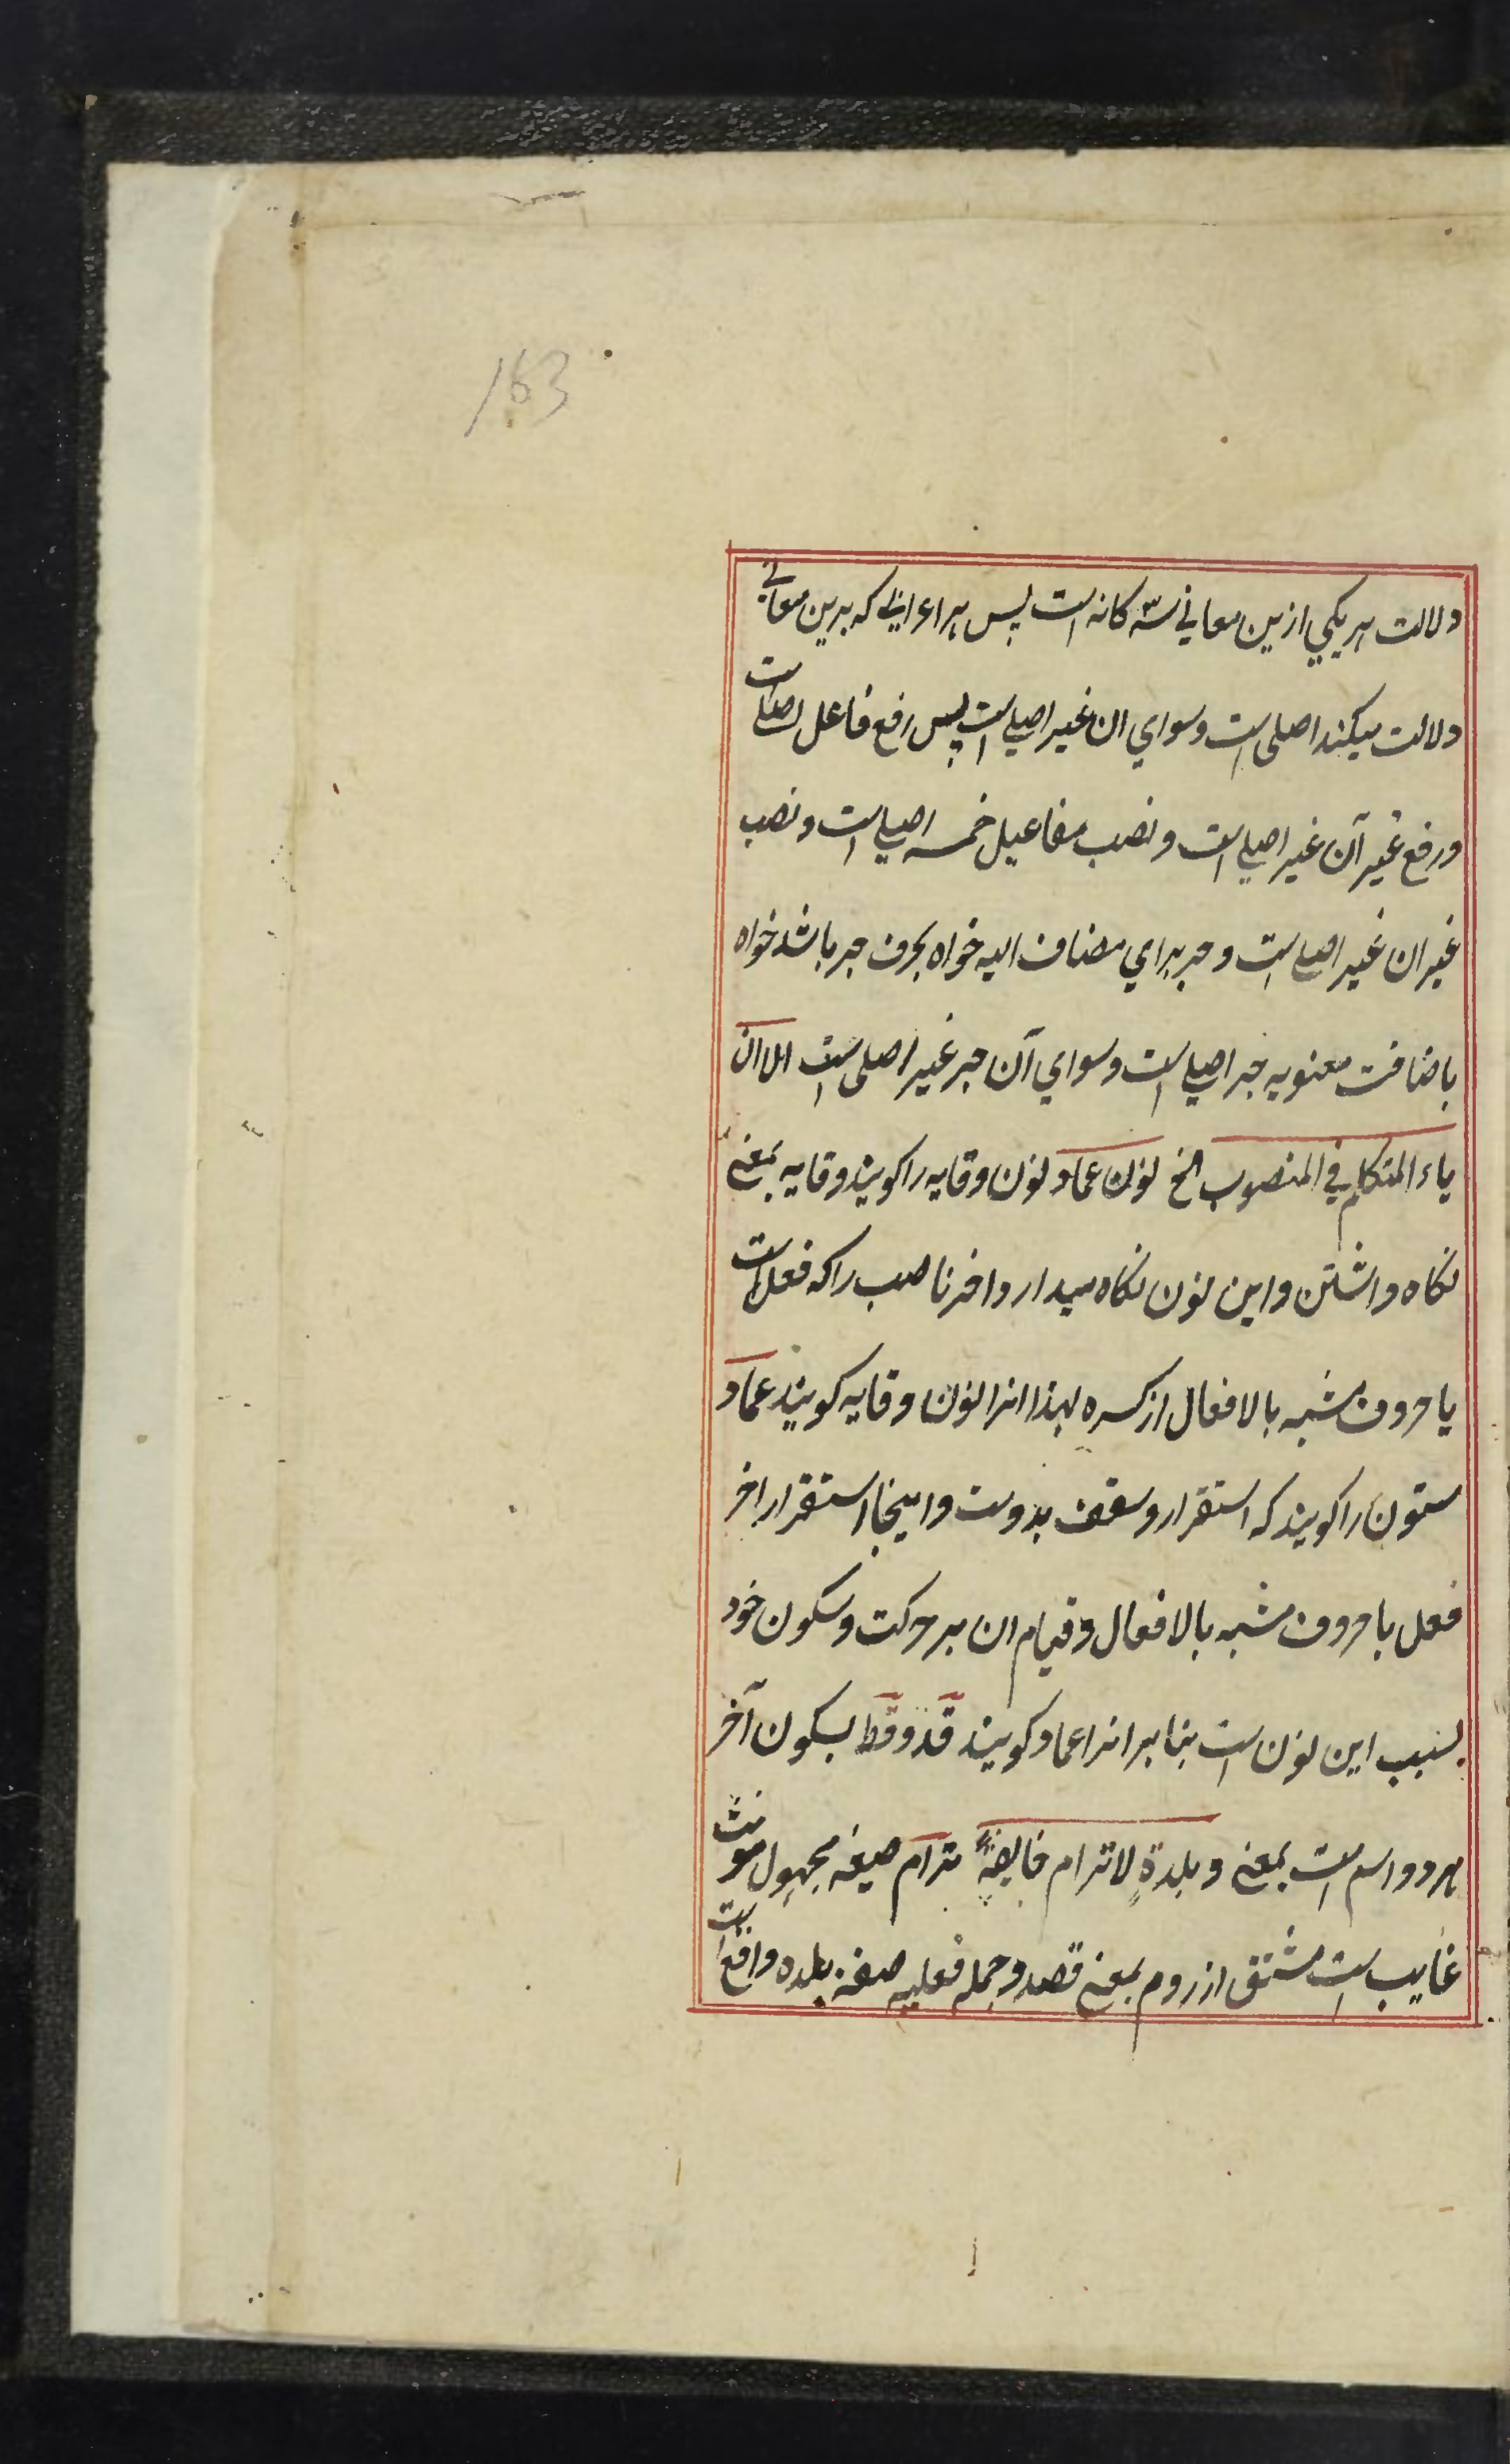 163
دلالت هر یکي ازین معاني سه کانه است پس هر اعرابے که برین معانے
دلالت میکند اصلی است وسواي ان غیر اصلے است پس رفع فاعل اصلے است
ورفع غیر آن غیر اصلے است ونصب مفاعیل خمسه اصلے است ونصب
غیر ان غیر اصلے است وجر براي مضاف الیه خواه بحرف جر باشد خواه
باضافت معنویه جر اصلے است وسواي آن جر غیر اصلی است الا ان
یاء المتکلم في المنصوب الخ نون عماد نون وقایه را کویند وقایه بمعنے
نکاه داشتن واین نون نکاه میدارد اخر ناصب را که فعل است
یا حروف مشبه بالافعال از کسره لهذا انرا نون وقایه کویند عماد
ستون را کویند که استقرار وسقف بدوست واینجا استقرار اخر
فعل با حروف مشبه بالافعال وقیام ان بر حرکت وسکون خود
بسبب این نون است بنابر انرا عماد کویند قد وقط بسکون آخر
هر دو اسم است بمعنے وبلدةٍ لا ترام خایفةً ترام صیغه مجهول مونث
غایب است مشتق از روم بمعنے قصد وجمله فعلیه صفة بلده واقع است